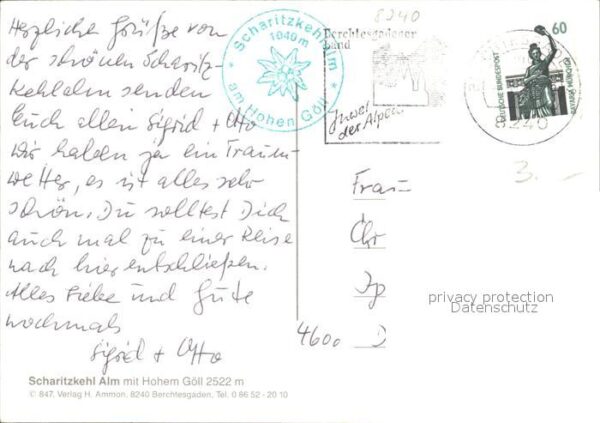 Herzliche Grüße von
der schönen Scharitz-
kehlalm senden
Euch allen Sigrid + Otto
Wir haben ja ein Traum-
wetter, es ist alles sehr
schön. Du solltest Dich
auch mal zu einer Reise
nach hier entschließen.
Alles Liebe und Gute
nochmals
Sigrid + Otto
Scharitzkehl Alm mit Hohem Göll 2522 m
© 847. Verlag H. Ammon, 8240 Berchtesgaden, Tel. 0 86 52 - 20 10
* Scharitzkehlalm *
1040 m
am Hohen Göll
8240
Berchtesgadener
Land
Juwel
der Alpen
60
DEUTSCHE BUNDESPOST
BAVARIA MÜNCHEN
8240
3.-
Frau
Chr
Ip
4600 D
privacy protection
Datenschutz